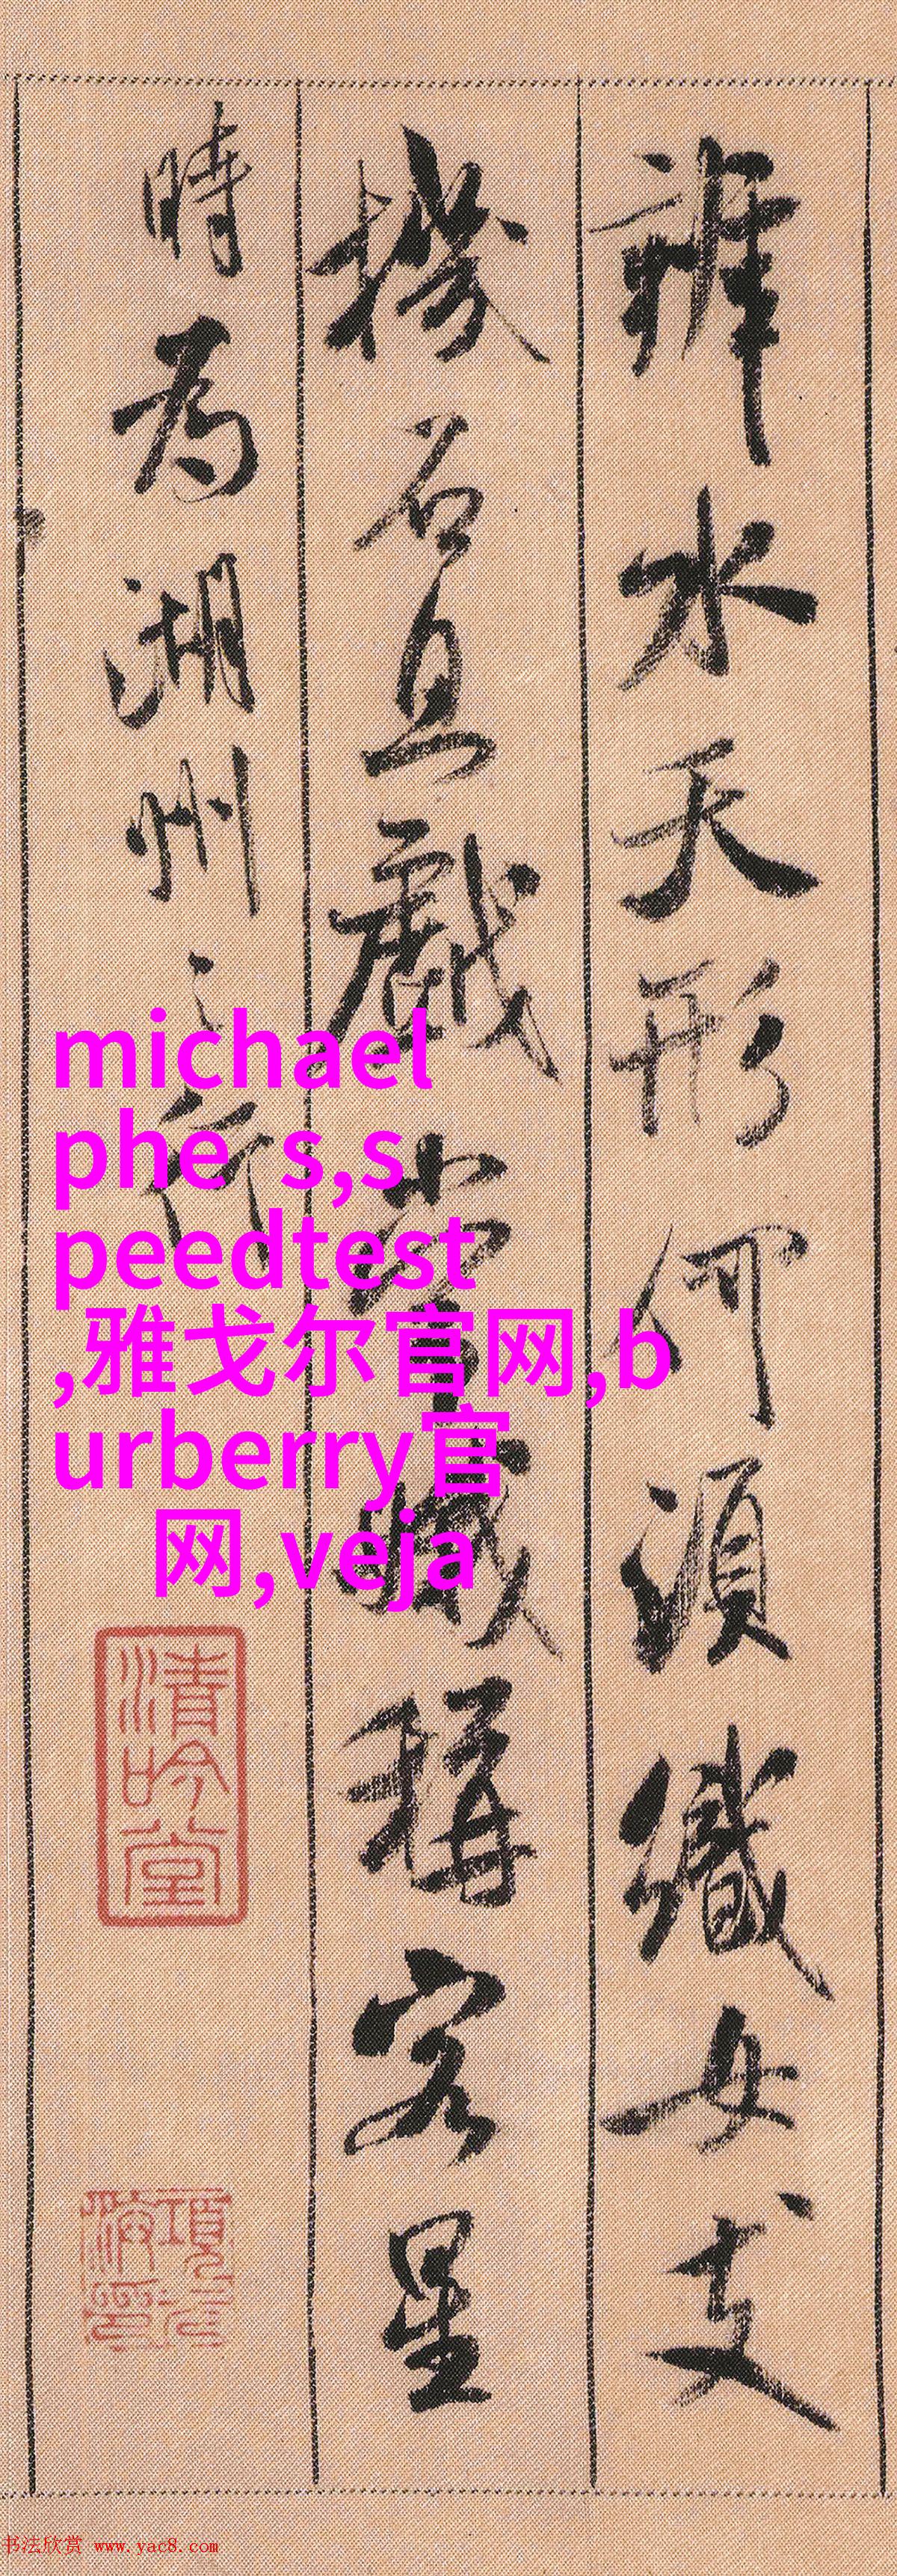 辨水天形何須織女支
機石且戲常娥稱客星
時為湖州之行
michael
phe s,s
peedtest
,雅戈尔官网,b
urberry官
网,veja
清吟堂
书法欣赏 www.yac8.com